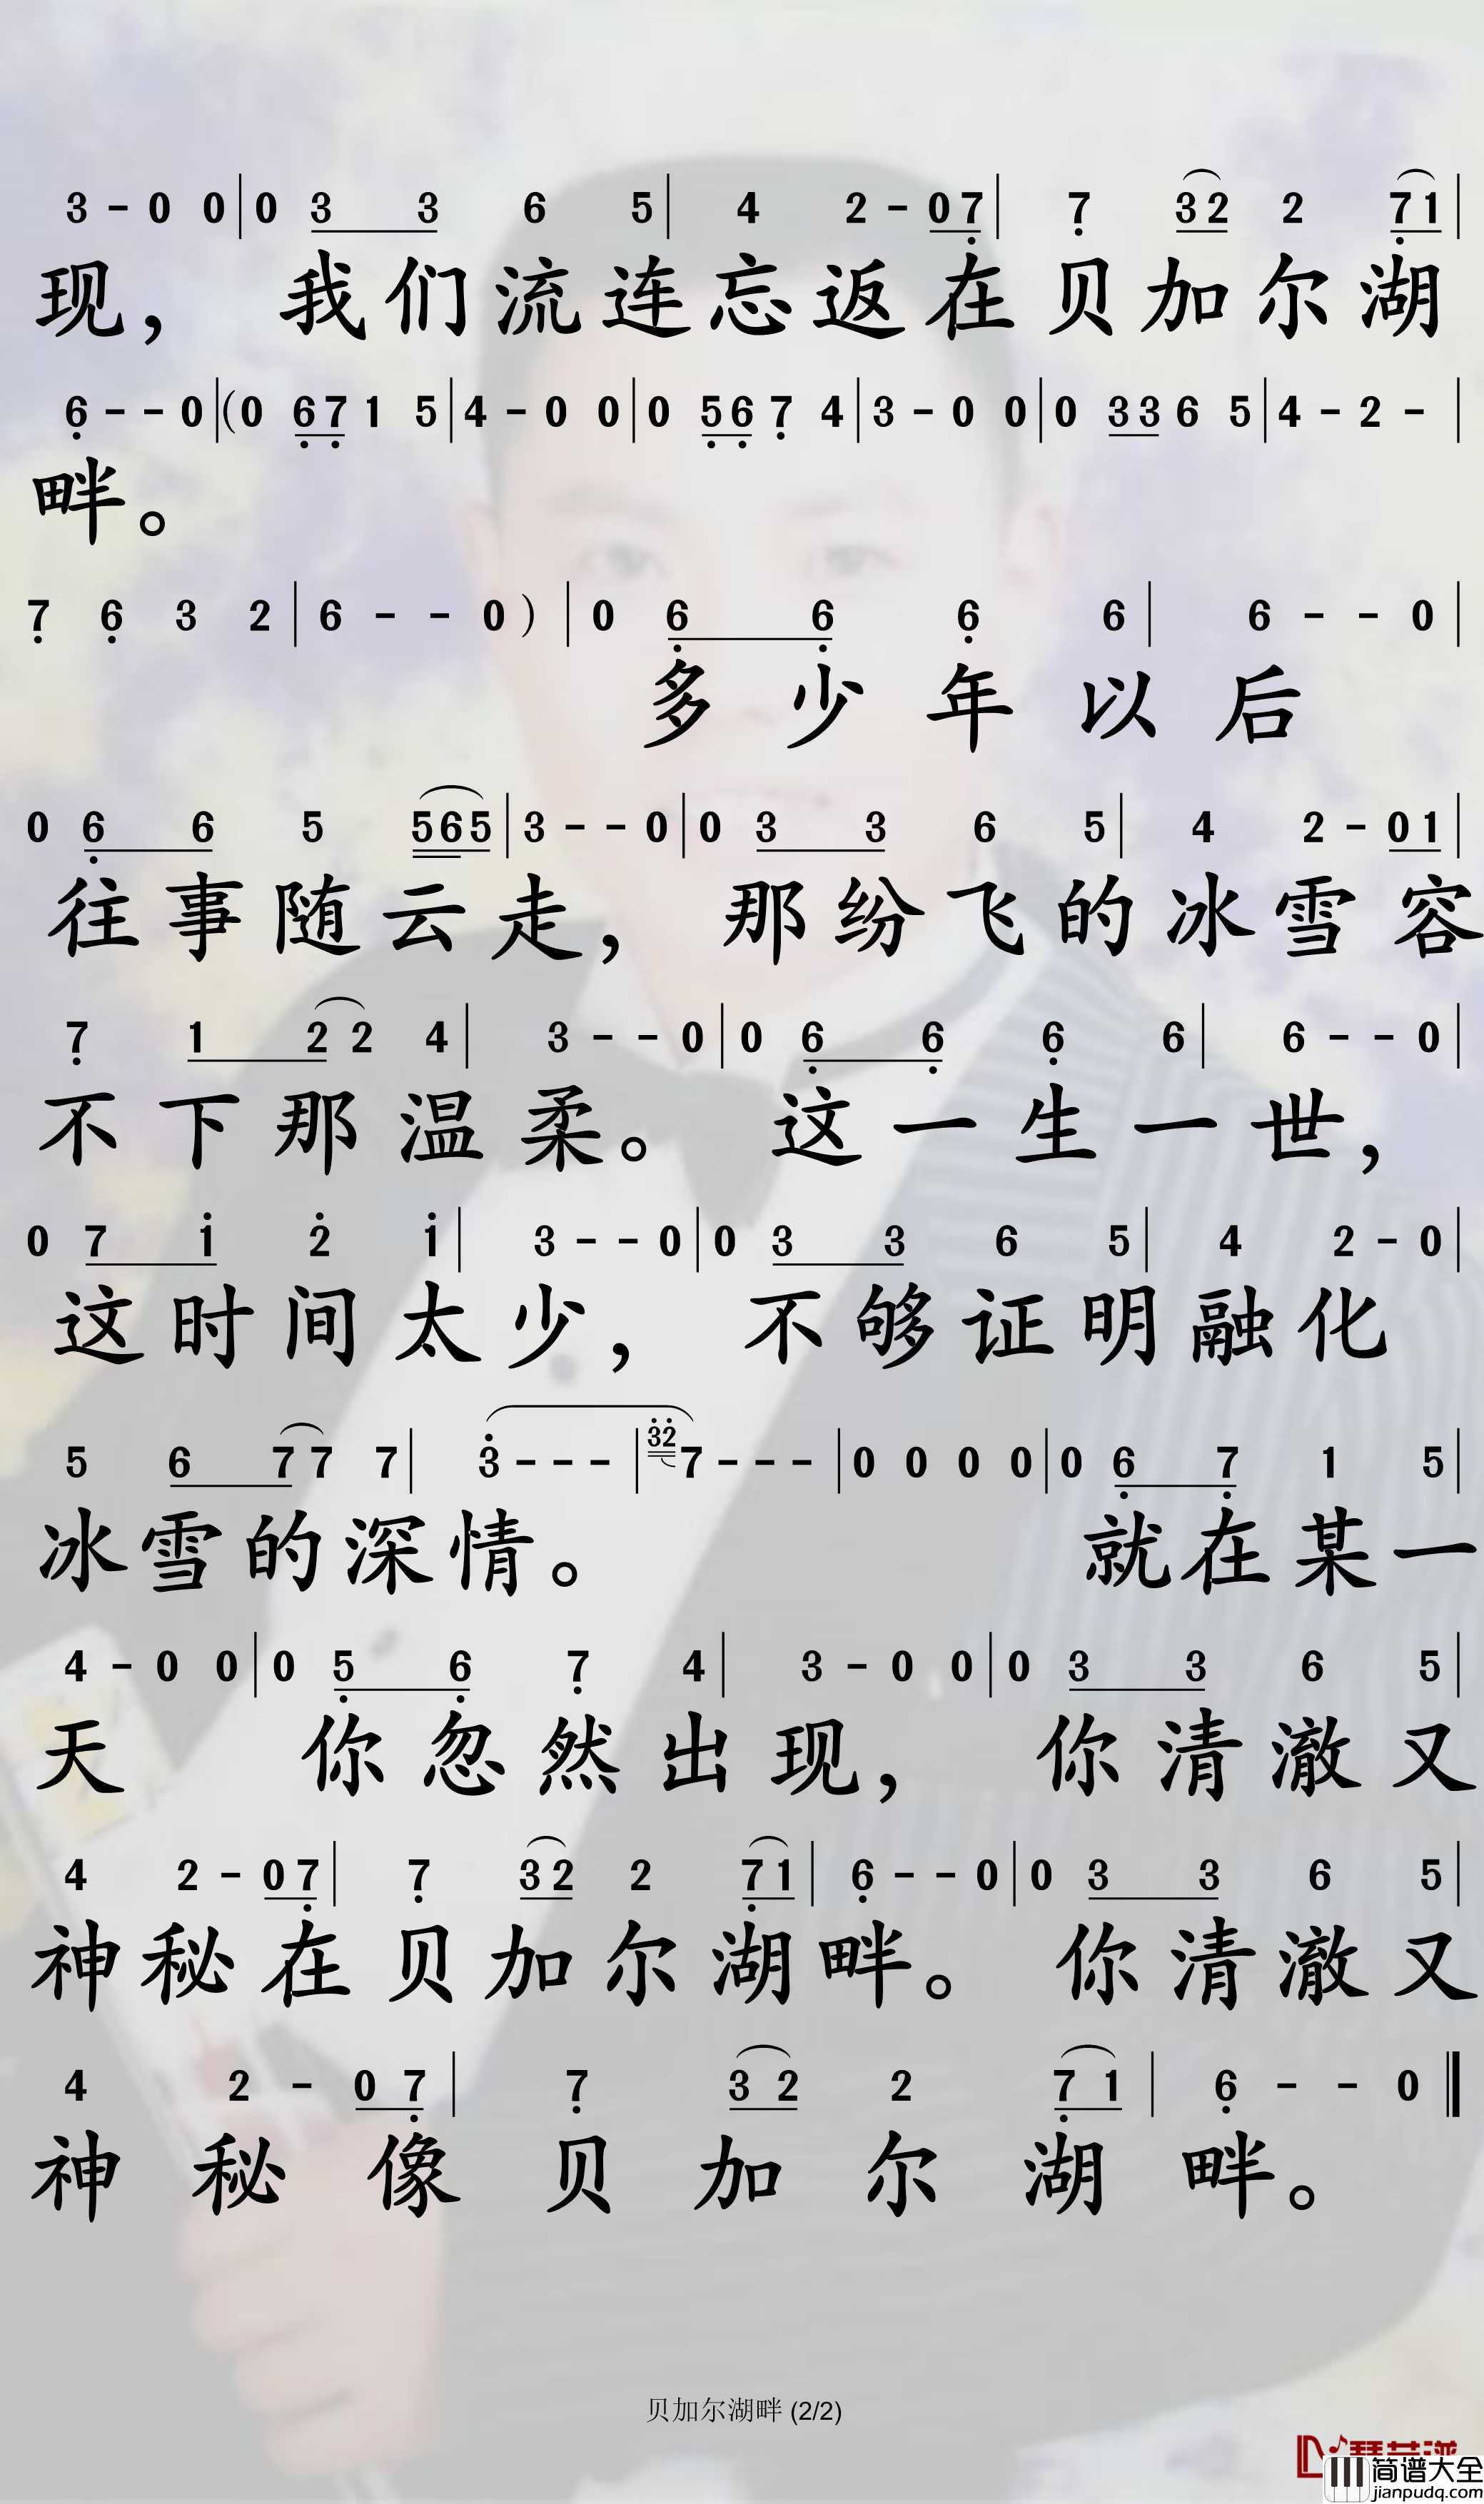 3 - 0 0 | 0 3 3 6 5 | 4 2 - 0 7 | 7 3 2 2 7 1 |
现， 我们流连忘返在贝加尔湖
6 - - 0 | (0 6 7 1 5 | 4 - 0 0 | 0 5 6 7 4 | 3 - 0 0 | 0 3 3 6 5 | 4 - 2 - |
畔。
7 6 3 2 | 6 - - 0 ) | 0 6 6 6 6 | 6 - - 0 |
多少年以后
0 6 6 5 5 6 5 | 3 - - 0 | 0 3 3 6 5 | 4 2 - 0 1 |
往事随云走， 那纷飞的冰雪容
7 1 2 2 4 | 3 - - 0 | 0 6 6 6 6 | 6 - - 0 |
不下那温柔。 这一生一世，
0 7 1 2 1 | 3 - - 0 | 0 3 3 6 5 | 4 2 - 0 |
这时间太少， 不够证明融化
5 6 7 7 7 | 3 - - - | 3 2 7 - - - | 0 0 0 0 | 0 6 7 1 5 |
冰雪的深情。 就在某一
4 - 0 0 | 0 5 6 7 4 | 3 - 0 0 | 0 3 3 6 5 |
天 你忽然出现， 你清澈又
4 2 - 0 7 | 7 3 2 2 7 1 | 6 - - 0 | 0 3 3 6 5 |
神秘在贝加尔湖畔。 你清澈又
4 2 - 0 7 | 7 3 2 2 7 1 | 6 - - 0 ‖
神秘像贝加尔湖畔。
贝加尔湖畔 (2/2)
简谱大全
jianpudq.com